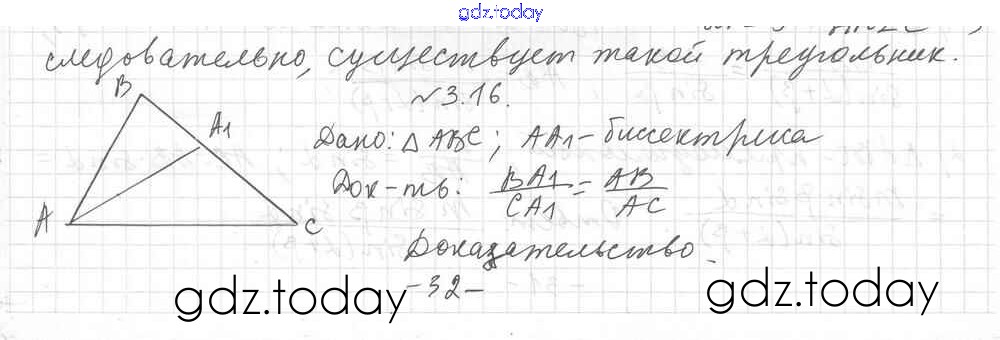 gdz.today
следовательно, существует такой треугольник.
№3.16.
B
A1
A
C
Дано: △ABC; AA1 - биссектриса
Док-ть: BA1/CA1 = AB/AC
Доказательство.
-32-
gdz.today
gdz.today